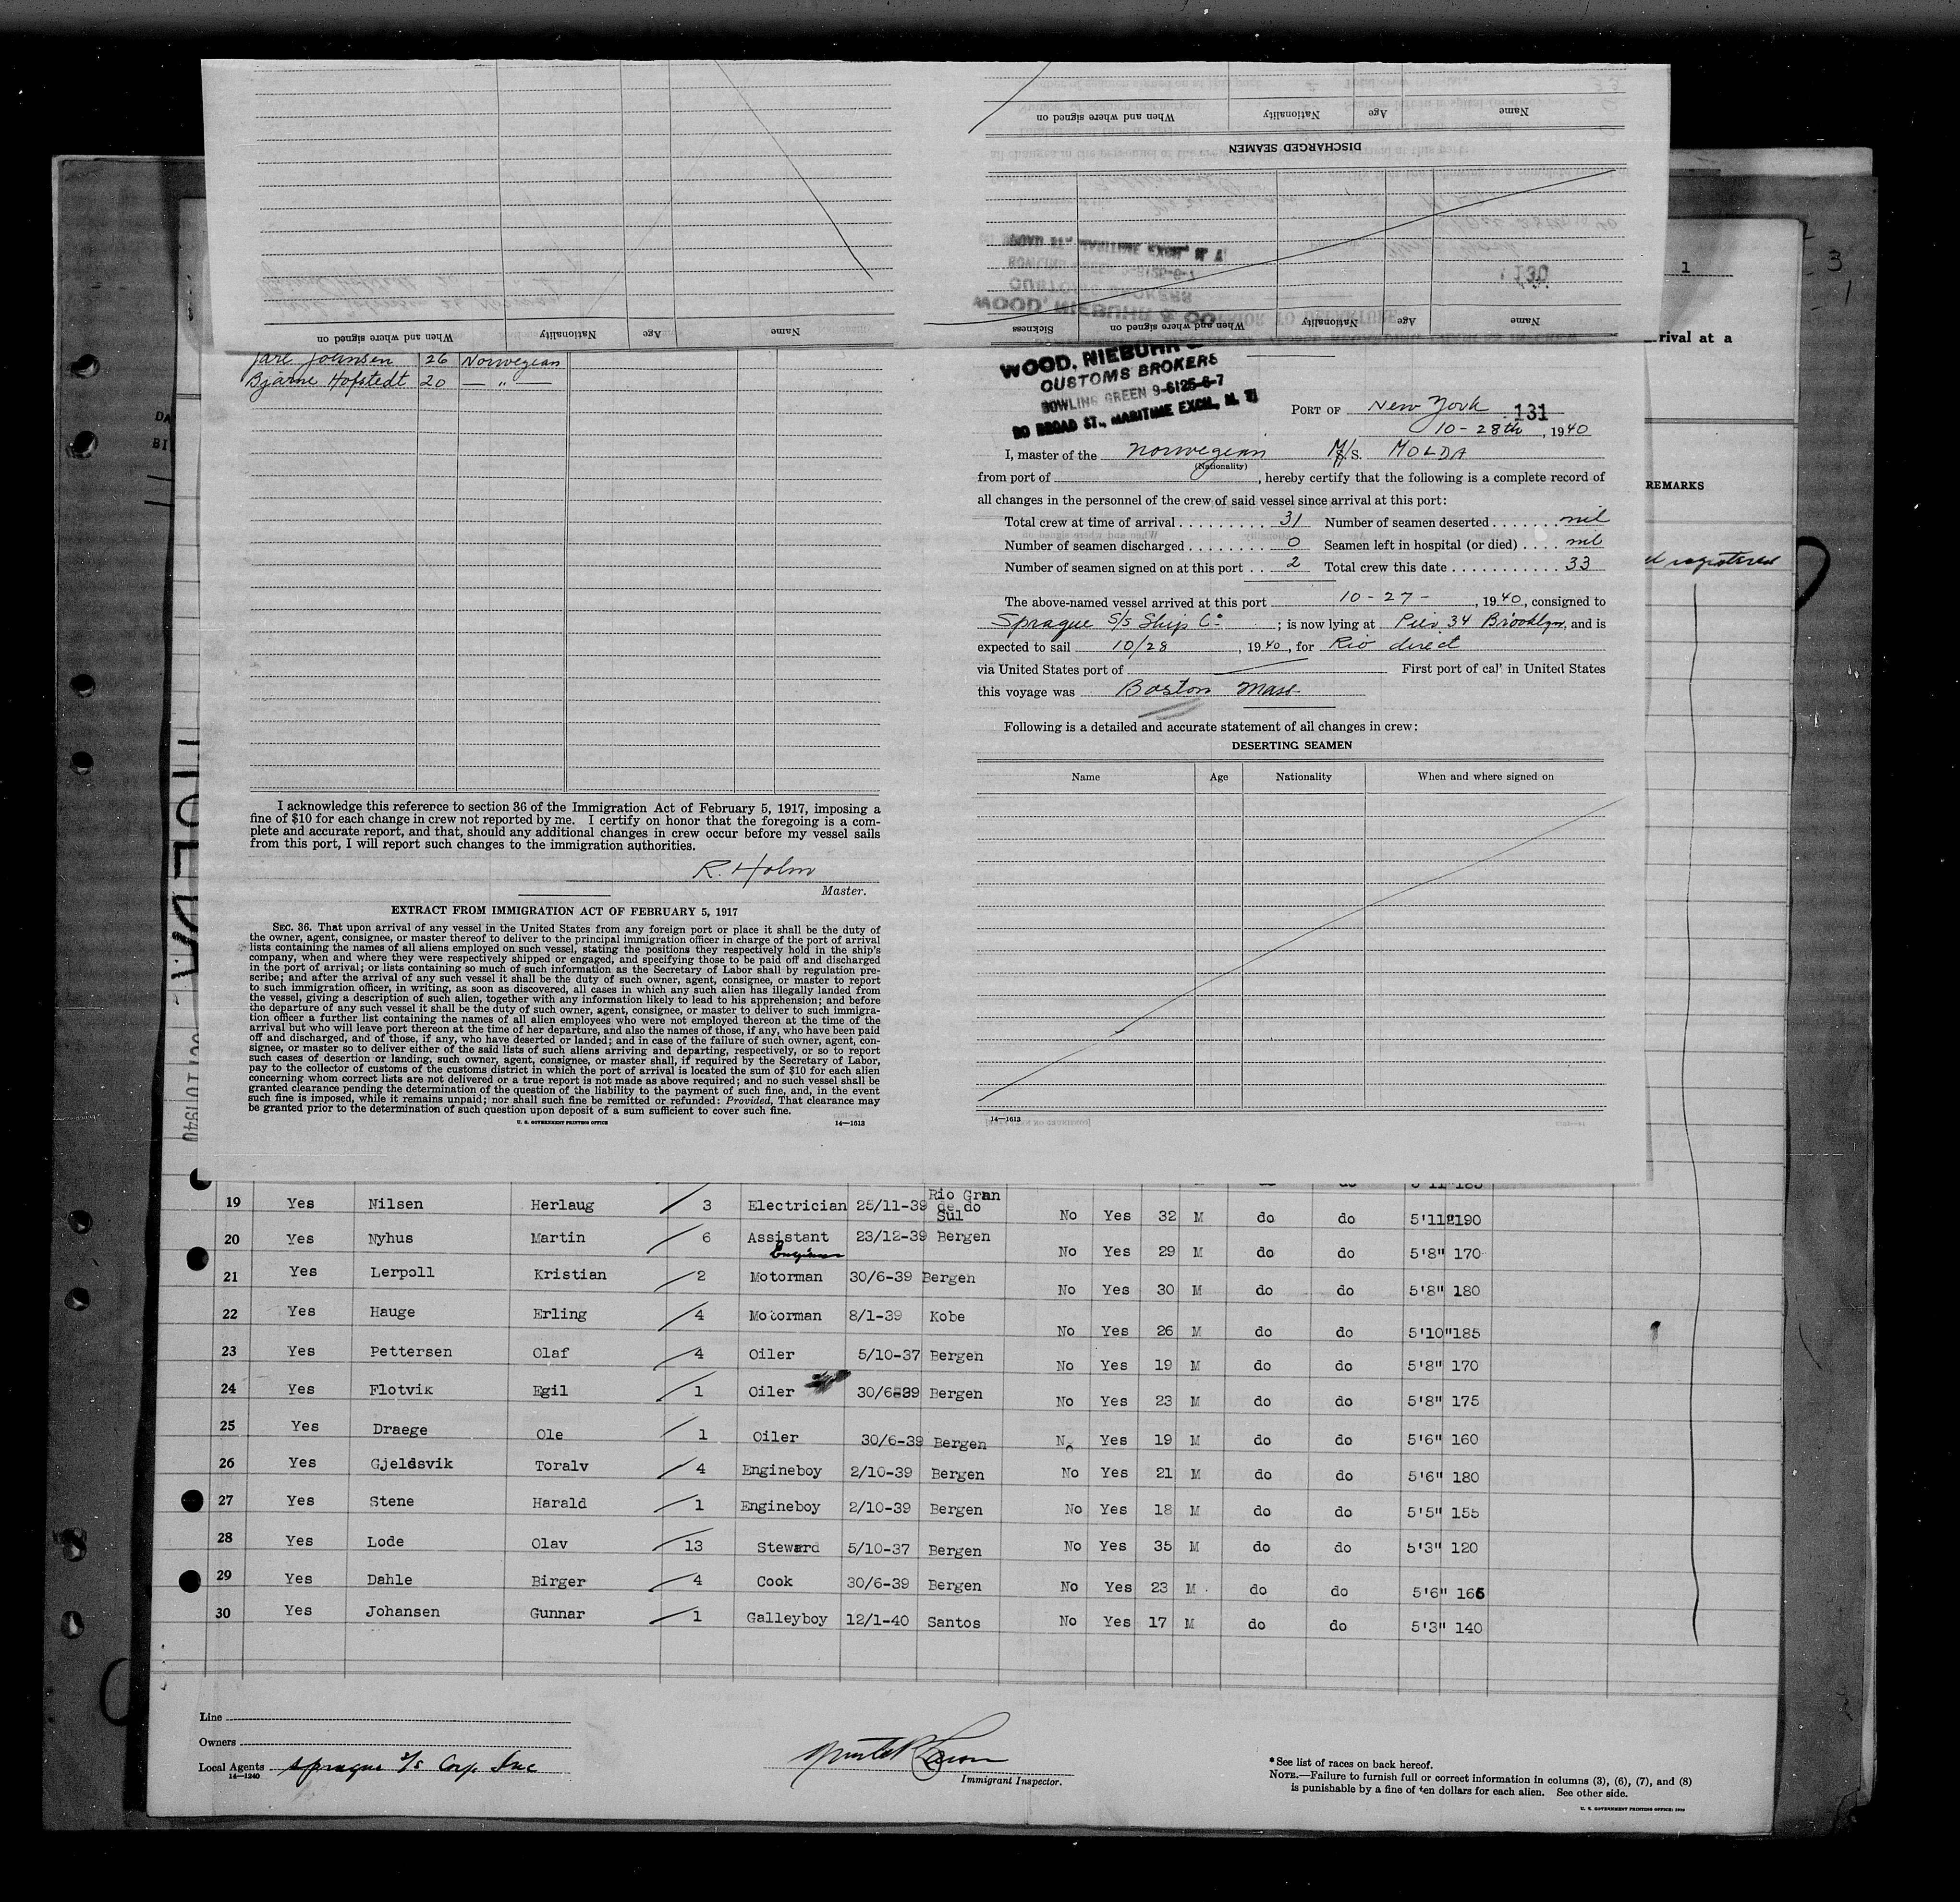 Name Age Nationality When and where signed on
DISCHARGED SEAMEN
Name Age Nationality When and where signed on
Name Age Nationality When and where signed on Sickness
130
WOOD, NIEBUHR & CO
CUSTOMS BROKERS
Jarl Johnsen 26 Norwegian
Bjarne Hofstedt 20 — " —
I acknowledge this reference to section 36 of the Immigration Act of February 5, 1917, imposing a
fine of $10 for each change in crew not reported by me. I certify on honor that the foregoing is a com-
plete and accurate report, and that, should any additional changes in crew occur before my vessel sails
from this port, I will report such changes to the immigration authorities.
R. Holm
Master.
EXTRACT FROM IMMIGRATION ACT OF FEBRUARY 5, 1917
SEC. 36. That upon arrival of any vessel in the United States from any foreign port or place it shall be the duty of
the owner, agent, consignee, or master thereof to deliver to the principal immigration officer in charge of the port of arrival
lists containing the names of all aliens employed on such vessel, stating the positions they respectively hold in the ship's
company, when and where they were respectively shipped or engaged, and specifying those to be paid off and discharged
in the port of arrival; or lists containing so much of such information as the Secretary of Labor shall by regulation pre-
scribe; and after the arrival of any such vessel it shall be the duty of such owner, agent, consignee, or master to report
to such immigration officer, in writing, as soon as discovered, all cases in which any such alien has illegally landed from
the vessel, giving a description of such alien, together with any information likely to lead to his apprehension; and before
the departure of any such vessel it shall be the duty of such owner, agent, consignee, or master to deliver to such immigra-
tion officer a further list containing the names of all alien employees who were not employed thereon at the time of the
arrival but who will leave port thereon at the time of her departure, and also the names of those, if any, who have been paid
off and discharged, and of those, if any, who have deserted or landed; and in case of the failure of such owner, agent, con-
signee, or master so to deliver either of the said lists of such aliens arriving and departing, respectively, or so to report
such cases of desertion or landing, such owner, agent, consignee, or master shall, if required by the Secretary of Labor,
pay to the collector of customs of the customs district in which the port of arrival is located the sum of $10 for each alien
concerning whom correct lists are not delivered or a true report is not made as above required; and no such vessel shall be
granted clearance pending the determination of the question of the liability to the payment of such fine, and, in the event
such fine is imposed, while it remains unpaid; nor shall such fine be remitted or refunded: Provided, That clearance may
be granted prior to the determination of such question upon deposit of a sum sufficient to cover such fine.
U. S. GOVERNMENT PRINTING OFFICE 14—1613
WOOD, NIEBUHR &
CUSTOMS BROKERS
BOWLING GREEN 9-6125-6-7
80 BROAD ST., MARITIME EXCH., N. Y.
PORT OF New York 131
10 - 28th, 1940
I, master of the Norwegian M/S. MOLDA
(Nationality)
from port of , hereby certify that the following is a complete record of
all changes in the personnel of the crew of said vessel since arrival at this port:
Total crew at time of arrival . . . . . . . . . 31 Number of seamen deserted . . . . . . . nil
Number of seamen discharged . . . . . . . . 0 Seamen left in hospital (or died) . . . . nil
Number of seamen signed on at this port . . 2 Total crew this date . . . . . . . . . . . 33
The above-named vessel arrived at this port 10 - 27 - , 1940, consigned to
Sprague S/S Ship Co ; is now lying at Pier 34 Brooklyn, and is
expected to sail 10/28 , 1940, for Rio direct
via United States port of First port of call in United States
this voyage was Boston Mass
Following is a detailed and accurate statement of all changes in crew:
DESERTING SEAMEN
Name Age Nationality When and where signed on
14—1613
1
3
rival at a
REMARKS
registered
OCT 10 1940
19 Yes Nilsen Herlaug 3 Electrician 25/11-39 Rio Gran de do Sul No Yes 32 M do do 5'11" 190
20 Yes Nyhus Martin 6 Assistant Engineer 23/12-39 Bergen No Yes 29 M do do 5'8" 170
21 Yes Lerpoll Kristian 2 Motorman 30/6-39 Bergen No Yes 30 M do do 5'8" 180
22 Yes Hauge Erling 4 Motorman 8/1-39 Kobe No Yes 26 M do do 5'10" 185
23 Yes Pettersen Olaf 4 Oiler 5/10-37 Bergen No Yes 19 M do do 5'8" 170
24 Yes Flotvik Egil 1 Oiler 30/6-39 Bergen No Yes 23 M do do 5'8" 175
25 Yes Draege Ole 1 Oiler 30/6-39 Bergen No Yes 19 M do do 5'6" 160
26 Yes Gjeldsvik Toralv 4 Engineboy 2/10-39 Bergen No Yes 21 M do do 5'6" 180
27 Yes Stene Harald 1 Engineboy 2/10-39 Bergen No Yes 18 M do do 5'5" 155
28 Yes Lode Olav 13 Steward 5/10-37 Bergen No Yes 35 M do do 5'3" 120
29 Yes Dahle Birger 4 Cook 30/6-39 Bergen No Yes 23 M do do 5'6" 166
30 Yes Johansen Gunnar 1 Galleyboy 12/1-40 Santos No Yes 17 M do do 5'3" 140
Line
Owners
Local Agents Sprague S/S Corp. Inc
14—1240
Immigrant Inspector.
*See list of races on back hereof.
NOTE.—Failure to furnish full or correct information in columns (3), (6), (7), and (8)
is punishable by a fine of ten dollars for each alien. See other side.
U. S. GOVERNMENT PRINTING OFFICE: 1939